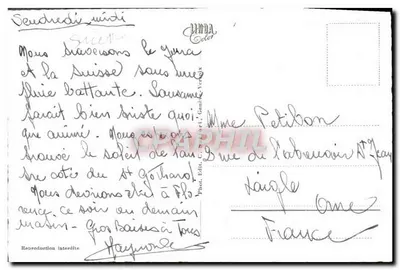 Vendredi midi
Nous traversons le Jura
et la Suisse sous une
pluie battante. Lausanne
serait bien triste quoi-
que animé. Nous
trouvé le soleil de l'au-
tre côté du St Gothard.
Nous devrions être à Flo-
rence ce soir ou demain
matin. Gros Baisers à Tous
Raymonde
Reproduction interdite
Color
Mme Petibon
rue de l'abreuvoir St Jean
Laigle
Orne
France